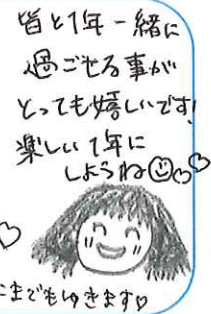 皆と1年一緒に
過ごせる事が
とっても嬉しいです!
楽しい1年に
しようね☺♡♡
こまでもゆきます♡